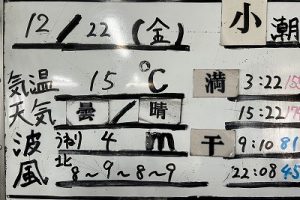 12/22(金) 小潮
気温 15 ℃ 満 3:22 15
天気 曇/晴 15:22 17
波 うねり 4 m 干 9:10 81
風 北 8~9~8~9 22:08 45